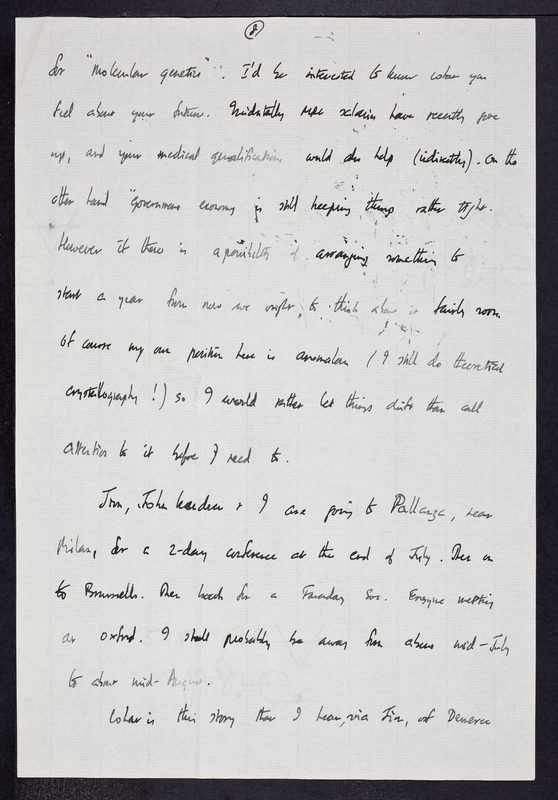 8.
for "molecular genetics". I'd be interested to know what you
feel about your future. Incidentally MRC salaries have recently gone
up, and your medical qualifications would also help (indirectly). On the
other hand "government economy" is still keeping things rather tight.
However if there is a possibility of arranging something to
start a year from now we ought to think about it fairly soon
Of course my own position here is anomalous (I still do theoretical
crystallography!) so I would rather let things drift than call
attention to it before I need to.
Jim, John Kendrew + I are going to Pallanza, near
Milan, for a 2-day conference at the end of July. Then on
to Brussells. Then back for a Faraday Soc. Enzyme meeting
at Oxford. I shall probably be away from about mid-July
to about mid-August.
What is this story that I hear, via Jim, of Demerec